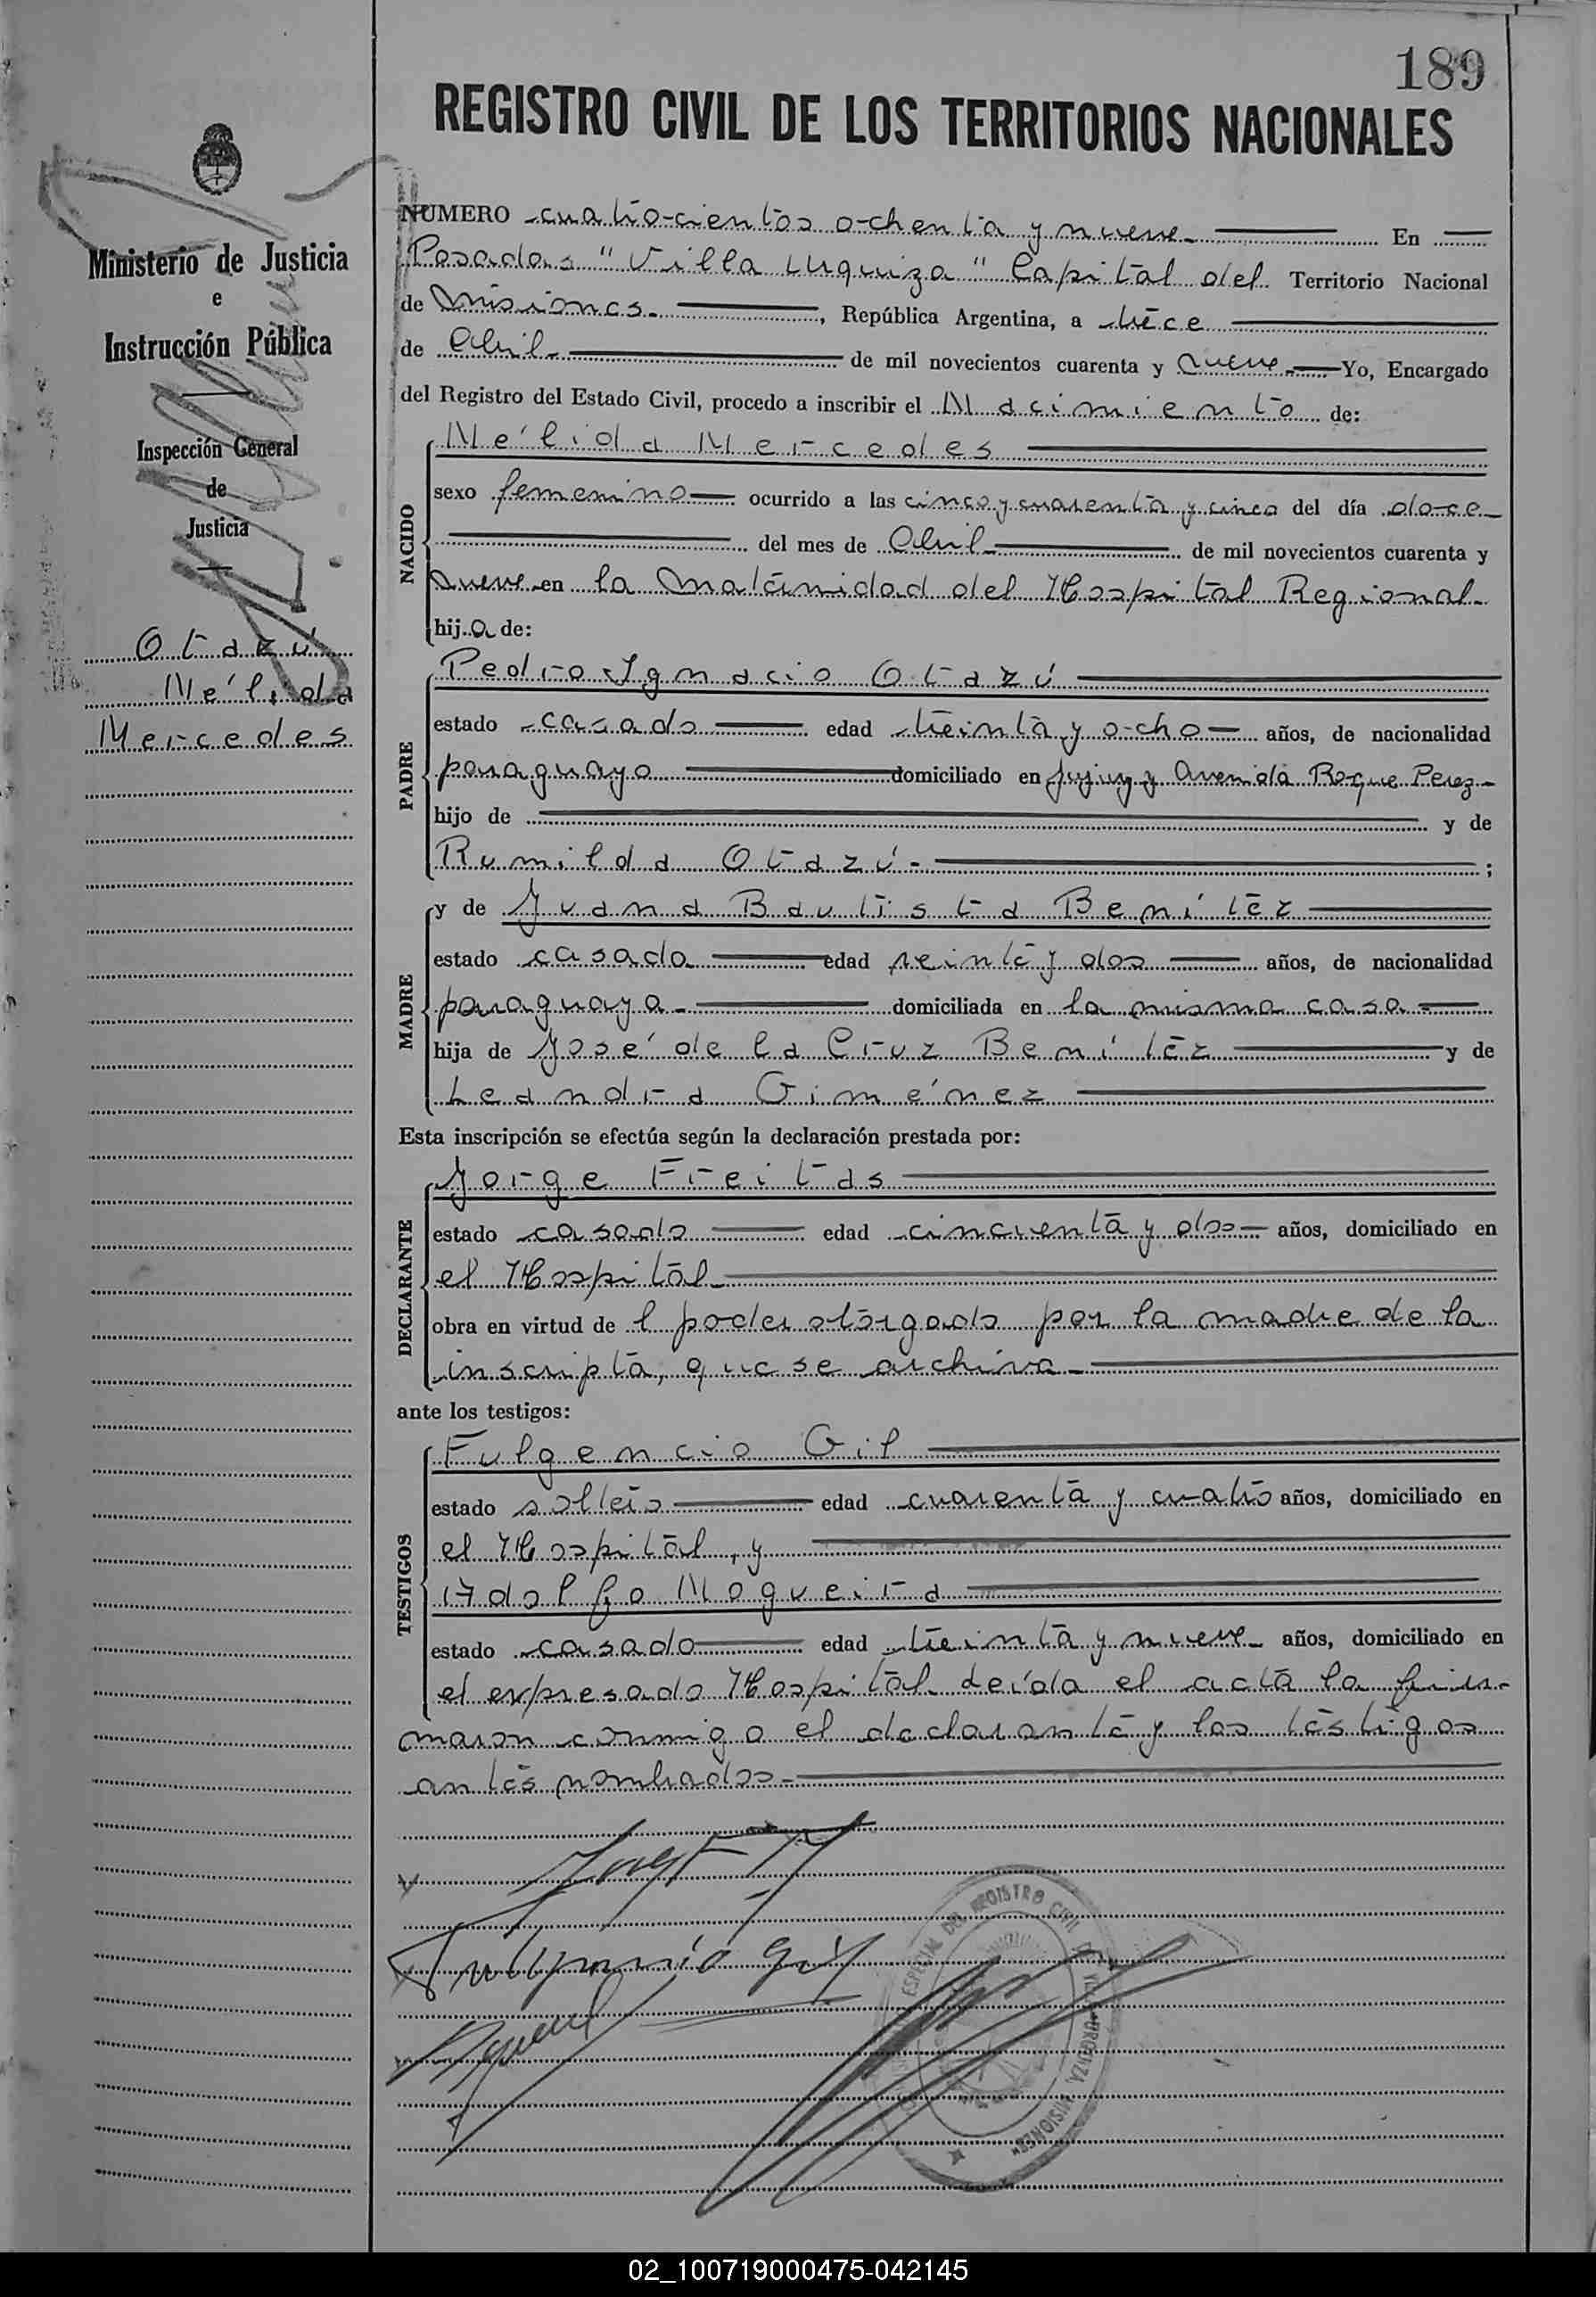 189
REGISTRO CIVIL DE LOS TERRITORIOS NACIONALES
Ministerio de Justicia
e
Instrucción Pública
Inspección General
de
Justicia
Otazú
Nélida
Mercedes
NUMERO cuatrocientos ochenta y nueve En
Posadas "Villa Urquiza" Capital del Territorio Nacional
de Misiones. , República Argentina, a trece
de Abril de mil novecientos cuarenta y nueve Yo, Encargado
del Registro del Estado Civil, procedo a inscribir el Nacimiento de:
NACIDO
Nélida Mercedes
sexo femenino ocurrido a las cinco y cuarenta y cinco del día doce
del mes de Abril de mil novecientos cuarenta y
nueve en la Maternidad del Hospital Regional
hija de:
PADRE
Pedro Ignacio Otazú
estado casado edad treinta y ocho años, de nacionalidad
paraguayo domiciliado en Jujuy y Avenida Roque Perez
hijo de y de
Rumilda Otazú ;
MADRE
y de Juana Bautista Benítez
estado casada edad veinte y dos años, de nacionalidad
paraguaya domiciliada en la misma casa
hija de José de la Cruz Benítez y de
Leandra Giménez
Esta inscripción se efectúa según la declaración prestada por:
DECLARANTE
Jorge Freitas
estado casado edad cincuenta y dos años, domiciliado en
el Hospital
obra en virtud de l poder otorgado por la madre de la
inscripta, que se archiva
ante los testigos:
TESTIGOS
Fulgencio Gil
estado soltero edad cuarenta y cuatro años, domiciliado en
el Hospital, y
Adolfo Nogueira
estado casado edad treinta y nueve años, domiciliado en
el expresado Hospital. Leída el acta la fir-
maron conmigo el declarante y los testigos
antes nombrados
Fulgencio Gil
ESPECIAL DEL REGISTRO CIVIL VILLA URQUIZA MISIONES
02_100719000475-042145